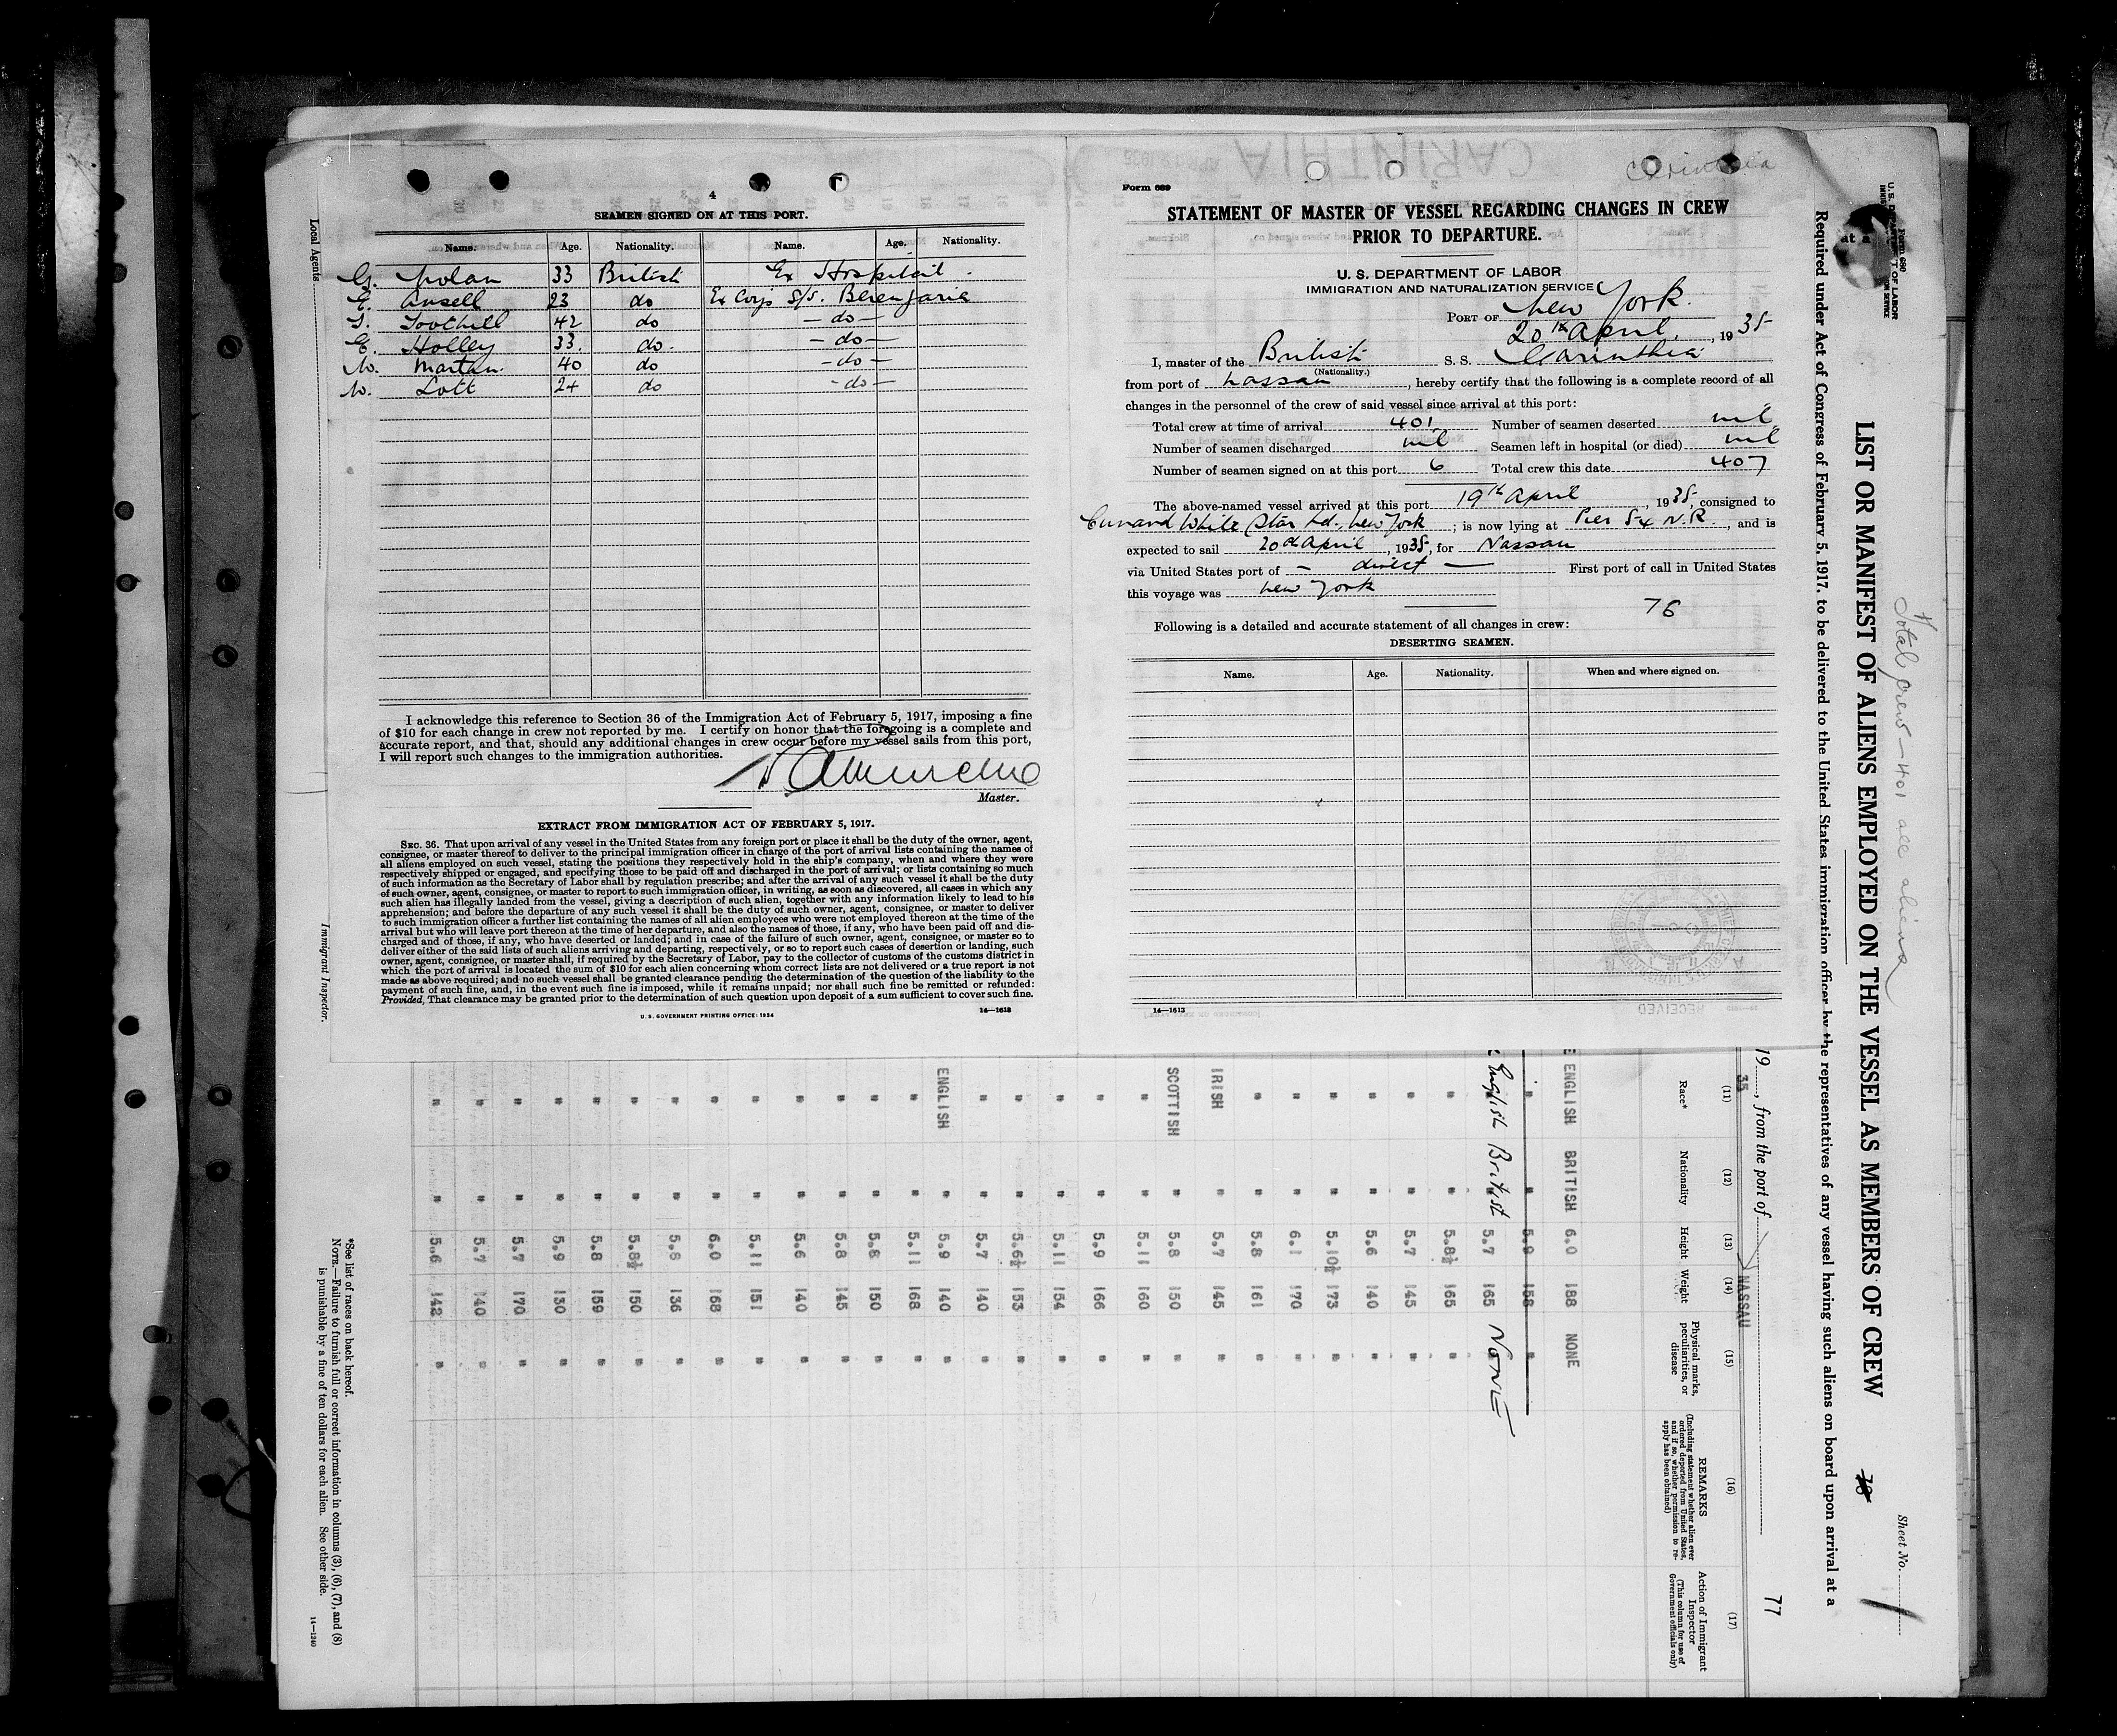 4
SEAMEN SIGNED ON AT THIS PORT.
Name. Age. Nationality. Name. Age. Nationality.
G. Nolan 33 British Ex Hospital.
E. Ansell 23 do Ex Corjs S/S. Berengaria
T. Toothill 42 do — do —
E. Holley 33. do. — do —
W. Martan. 40 do — do —
W. Lott 24 do — do —
I acknowledge this reference to Section 36 of the Immigration Act of February 5, 1917, imposing a fine
of $10 for each change in crew not reported by me. I certify on honor that the foregoing is a complete and
accurate report, and that, should any additional changes in crew occur before my vessel sails from this port,
I will report such changes to the immigration authorities.
Master.
EXTRACT FROM IMMIGRATION ACT OF FEBRUARY 5, 1917.
SEC. 36. That upon arrival of any vessel in the United States from any foreign port or place it shall be the duty of the owner, agent,
consignee, or master thereof to deliver to the principal immigration officer in charge of the port of arrival lists containing the names of
all aliens employed on such vessel, stating the positions they respectively hold in the ship's company, when and where they were
respectively shipped or engaged, and specifying those to be paid off and discharged in the port of arrival; or lists containing so much
of such information as the Secretary of Labor shall by regulation prescribe; and after the arrival of any such vessel it shall be the duty
of such owner, agent, consignee, or master to report to such immigration officer, in writing, as soon as discovered, all cases in which any
such alien has illegally landed from the vessel, giving a description of such alien, together with any information likely to lead to his
apprehension; and before the departure of any such vessel it shall be the duty of such owner, agent, consignee, or master to deliver
to such immigration officer a further list containing the names of all alien employees who were not employed thereon at the time of the
arrival but who will leave port thereon at the time of her departure, and also the names of those, if any, who have been paid off and dis-
charged and of those, if any, who have deserted or landed; and in case of the failure of such owner, agent, consignee, or master so to
deliver either of the said lists of such aliens arriving and departing, respectively, or so to report such cases of desertion or landing, such
owner, agent, consignee, or master shall, if required by the Secretary of Labor, pay to the collector of customs of the customs district in
which the port of arrival is located the sum of $10 for each alien concerning whom correct lists are not delivered or a true report is not
made as above required; and no such vessel shall be granted clearance pending the determination of the question of the liability to the
payment of such fine, and, in the event such fine is imposed, while it remains unpaid; nor shall such fine be remitted or refunded:
Provided, That clearance may be granted prior to the determination of such question upon deposit of a sum sufficient to cover such fine.
U. S. GOVERNMENT PRINTING OFFICE: 1934 14—1613
Local Agents
Immigrant Inspector.
Carinthia
Form 689
STATEMENT OF MASTER OF VESSEL REGARDING CHANGES IN CREW
PRIOR TO DEPARTURE.
U. S. DEPARTMENT OF LABOR
IMMIGRATION AND NATURALIZATION SERVICE
PORT OF New York.
20th April, 1935
I, master of the British S. S. Carinthia
(Nationality.)
from port of Nassau, hereby certify that the following is a complete record of all
changes in the personnel of the crew of said vessel since arrival at this port:
Total crew at time of arrival 401 Number of seamen deserted nil
Number of seamen discharged nil Seamen left in hospital (or died) nil
Number of seamen signed on at this port 6 Total crew this date 407
The above-named vessel arrived at this port 19th April, 1935, consigned to
Cunard White Star Ltd., New York; is now lying at Pier 54 N.R., and is
expected to sail 20th April, 1935, for Nassau
via United States port of — direct — First port of call in United States
this voyage was New York
76
Following is a detailed and accurate statement of all changes in crew:
DESERTING SEAMEN.
Name. Age. Nationality. When and where signed on.
14—1613
Form 680
U. S. DEPARTMENT OF LABOR
Total crew — 401 all aliens
Sheet No. 1
LIST OR MANIFEST OF ALIENS EMPLOYED ON THE VESSEL AS MEMBERS OF CREW
18
Required under Act of Congress of February 5, 1917, to be delivered to the United States immigration officer by the representatives of any vessel having such aliens on board upon arrival at a
77
19 35, from the port of NASSAU
(11) (12) (13) (14) (15) (16) (17)
Race* Nationality Height Weight Physical marks, peculiarities, or disease REMARKS (Including statement whether alien ever ordered deported from United States, and if so, whether permission to re-apply has been obtained) Action of Immigrant Inspector (This column for use of Government officials only)
ENGLISH BRITISH 6.0 188 NONE
" " 5.9 158 "
English British 5.7 165 NONE
" " 5.8½ 165 "
" " 5.7 145 "
" " 5.6 140 "
" " 5.10½ 173 "
" " 6.1 170 "
" " 5.8 161 "
IRISH " 5.7 145 "
SCOTTISH " 5.8 150 "
" " 5.11 160 "
" " 5.9 166 "
" " 5.11 154 "
" " 5.6½ 153 "
" " 5.7 140 "
ENGLISH " 5.9 140 "
" " 5.11 168 "
" " 5.8 150 "
" " 5.8 145 "
" " 5.6 140 "
" " 5.11 151 "
" " 6.0 168 "
" " 5.8 136 "
" " 5.8½ 150 "
" " 5.8 159 "
" " 5.9 130 "
" " 5.7 170 "
" " 5.7 140 "
" " 5.6 148 "
*See list of races on back hereof.
NOTE.—Failure to furnish full or correct information in columns (3), (6), (7), and (8)
is punishable by a fine of ten dollars for each alien. See other side.
14—1240